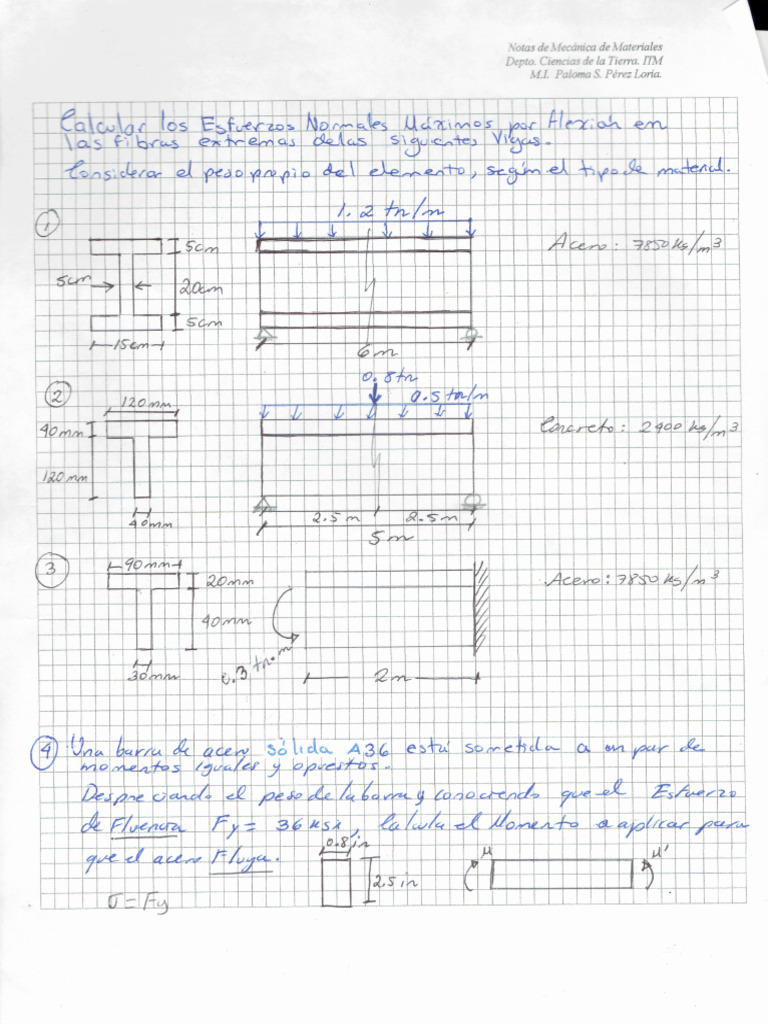 Notas de Mecánica de Materiales
Depto. Ciencias de la Tierra. ITM
M.I. Paloma S. Pérez Loria.
Calcular los Esfuerzos Normales Máximos por flexión en
las fibras extremas de las siguientes Vigas.
Considerar el peso propio del elemento, según el tipo de material.
1
1.2 tn/m
Acero: 7850 kg/m3
5cm
5cm
20cm
5cm
15cm
6m
2
0.8tn
120mm
0.5 tn/m
40mm
Concreto: 2400 kg/m3
120mm
40mm
2.5 m
2.5 m
5m
3
90mm
20mm
Acero: 7850 kg/m3
40mm
30mm
0.3 tn.m
2m
4 Una barra de acero sólida A36 está sometida a un par de
momentos iguales y opuestos.
Despreciando el peso de la barra y conociendo que el Esfuerzo
de Fluencia Fy = 36 ksi, calcula el Momento a aplicar para
que el acero Fluya.
0.8 in
2.5 in
M
M'
σ = Fy